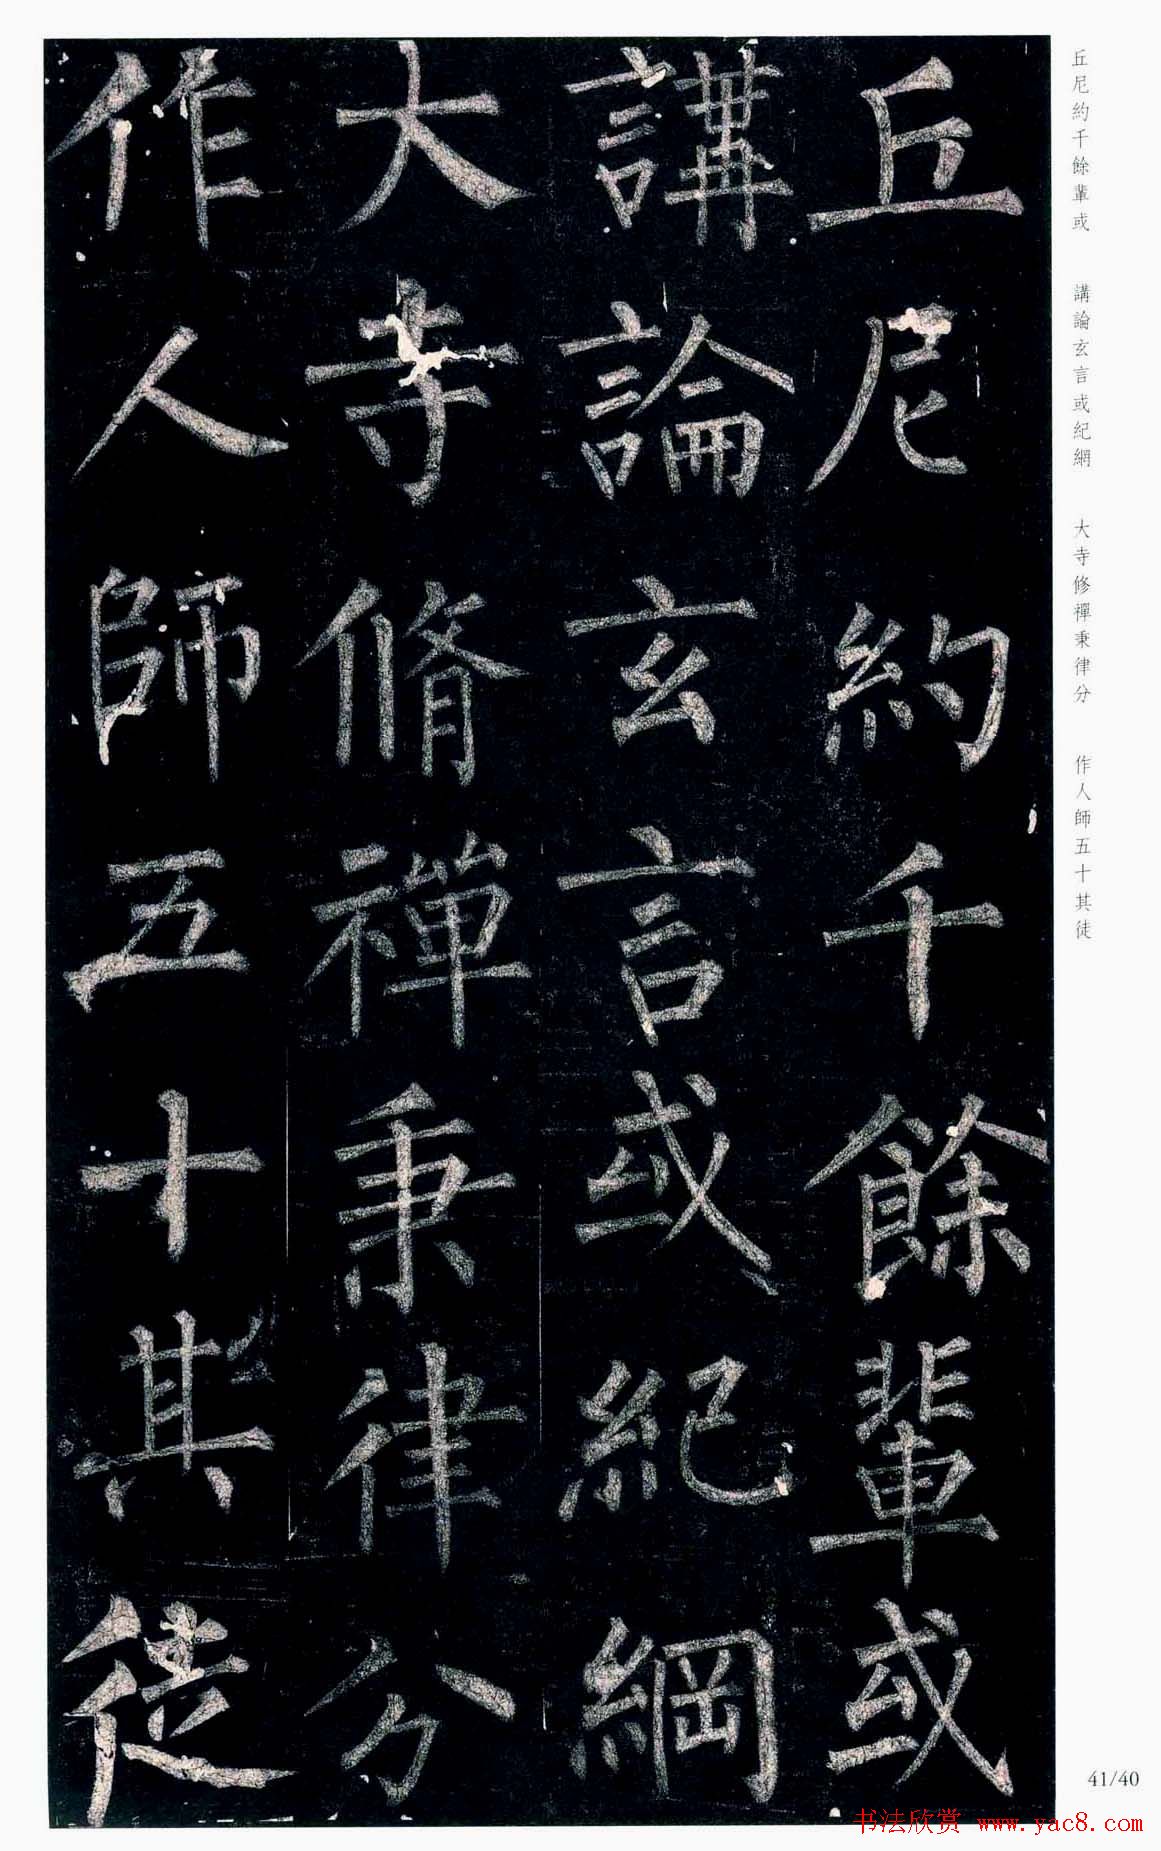 丘尼約千餘輩或
講論玄言或紀綱
大寺脩禪秉律分
作人師五十其徒
丘尼約千餘輩或
講論玄言或紀網
大寺修禪秉律分
作人師五十其徒
41/40
书法欣赏 www.yac8.com